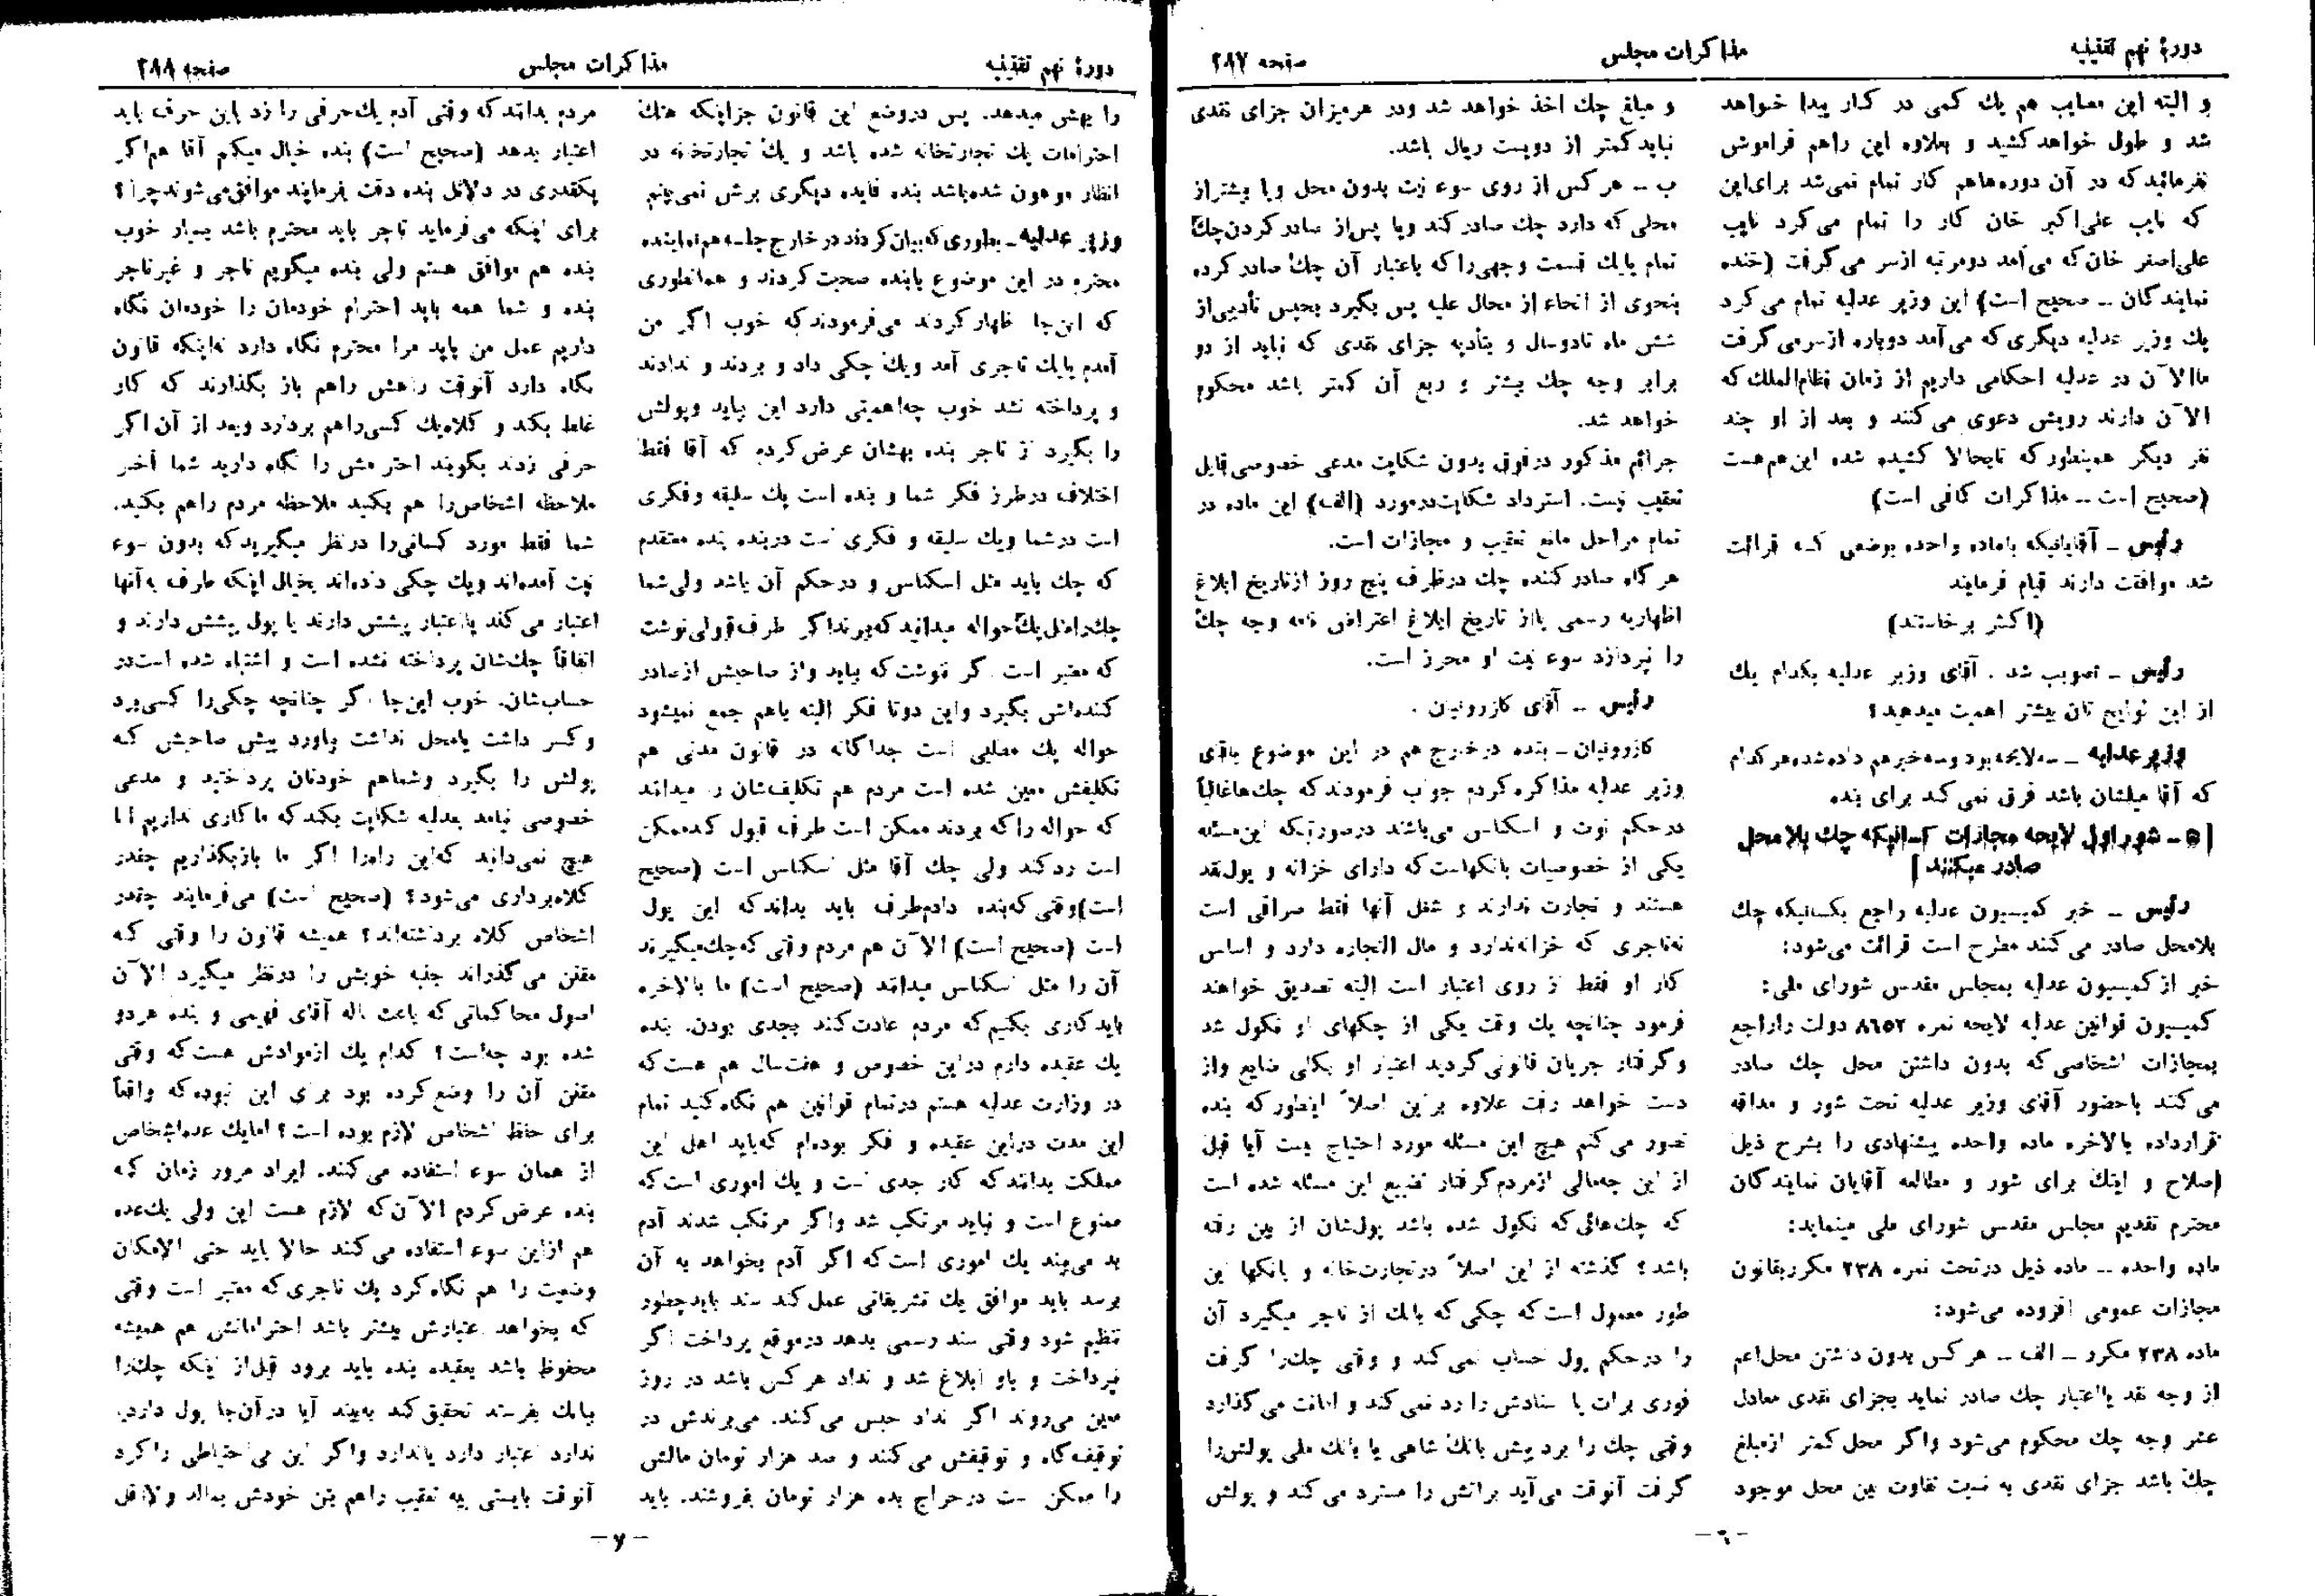 دورهٔ نهم تقنینیه
مذاکرات مجلس
صفحه ۲۸۷
و البته این معایب هم یك کمی در کار پیدا خواهد
شد و طول خواهد کشید و بعلاوه این راهم فراموش
نفرمائید که در آن دوره‌ها هم کار تمام نمی‌شد برای این
که نایب علی‌اکبر خان کار را تمام می‌کرد نایب
علی‌اصغر خان که می‌آمد دومرتبه ازسر می‌گرفت (خنده
نمایندگان ــ صحیح است) این وزیر عدلیه تمام می‌کرد
یك وزیر عدلیه دیگری که می‌آمد دوباره ازسر می‌گرفت
ما الآن در عدلیه احکامی داریم از زمان نظام‌الملك که
الآن دارند رویش دعوی می‌کنند و بعد از او چند
نفر دیگر همینطور که تابحالا کشیده شده این هم هست
(صحیح است ــ مذاکرات کافی است)
رئیس ــ آقایانیکه باماده واحده بوضعی که قرائت
شد موافقت دارند قیام فرمایند
(اکثر برخاستند)
رئیس ــ تصویب شد . آقای وزیر عدلیه بکدام یك
از این لوایح تان بیشتر اهمیت میدهید؟
وزیر عدلیه ــ سه لایحه بود وسه خبرهم داده شده هر کدام
که آقا میلشان باشد فرق نمی‌کند برای بنده
[۵ ــ شور اول لایحه مجازات کسانیکه چك بلامحل
صادر میکنند]
رئیس ــ خبر کمیسیون عدلیه راجع بکسانیکه چك
بلامحل صادر می‌کنند مطرح است قرائت می‌شود:
خبر از کمیسیون عدلیه بمجلس مقدس شورای ملی:
کمیسیون قوانین عدلیه لایحه نمره ۸۶۵۲ دولت راراجع
بمجازات اشخاصی که بدون داشتن محل چك صادر
می‌کنند باحضور آقای وزیر عدلیه تحت شور و مداقه
قرارداده بالاخره ماده واحده پیشنهادی را بشرح ذیل
اصلاح و اینك برای شور و مطالعه آقایان نمایندگان
محترم تقدیم مجلس مقدس شورای ملی مینماید:
ماده واحده ــ ماده ذیل درتحت نمره ۲۳۸ مکرر بقانون
مجازات عمومی افزوده می‌شود:
ماده ۲۳۸ مکرر ــ الف ــ هر کس بدون داشتن محل اعم
از وجه نقد یا اعتبار چك صادر نماید بجزای نقدی معادل
عشر وجه چك محکوم می‌شود واگر محل کمتر ازمبلغ
چك باشد جزای نقدی به نسبت تفاوت بین محل موجود
و مبلغ چك اخذ خواهد شد ودر هرمیزان جزای نقدی
نباید کمتر از دویست ریال باشد.
ب ــ هر کس از روی سوء نیت بدون محل ویا بیشتراز
محلی که دارد چك صادر کند ویا پس‌از صادر کردن چك
تمام یا یك قسمت وجهی را که باعتبار آن چك صادر کرده
بنحوی از انحاء از محال علیه پس بگیرد بحبس تأدیبی از
شش ماه تا دو سال و بتأدیه جزای نقدی که نباید از دو
برابر وجه چك بیشتر و ربع آن کمتر باشد محکوم
خواهد شد.
جرائم مذکور درفوق بدون شکایت مدعی خصوصی قابل
تعقیب نیست. استرداد شکایت درمورد (الف) این ماده در
تمام مراحل مانع تعقیب و مجازات است.
هر گاه صادر کننده چك درظرف پنج روز ازتاریخ ابلاغ
اظهاریه رسمی یااز تاریخ ابلاغ اعتراض نامه وجه چك
را نپردازد سوء نیت او محرز است.
رئیس ــ آقای کازرونیان .
کازرونیان ــ بنده درخارج هم در این موضوع باآقای
وزیر عدلیه مذاکره کردم جواب فرمودند که چك‌ها غالباً
درحکم نوت و اسکناس می‌باشند درصورتیکه این مسئله
یکی از خصوصیات بانکهاست که دارای خزانه و پول نقد
هستند و تجارت ندارند و شغل آنها فقط صرافی است
نه‌تاجری که خزانه ندارد و مال التجاره دارد و اساس
کار او فقط از روی اعتبار است البته تصدیق خواهند
فرمود چنانچه یك وقت یکی از چکهای او نکول شد
و گرفتار جریان قانونی گردید اعتبار او بکلی ضایع واز
دست خواهد رفت علاوه براین اصلاً اینطور که بنده
تصور می‌کنم هیچ این مسئله مورد احتیاج نیست آیا قبل
از این چه مالی ازمردم گرفتار تضییع این مسئله شده است
که چك‌هائی که نکول شده باشد پولشان از بین رفته
باشد؟ گذشته از این اصلاً درتجارت‌خانه و بانکها این
طور معمول است که چکی که بانك از تاجر میگیرد آن
را درحکم پول حساب نمی‌کند و وقتی چك را گرفت
فوری برات یا اسنادش را رد نمی‌کند و امانت می‌گذارد
وقتی چك را برد پیش بانك شاهی یا بانك ملی پولش را
گرفت آنوقت می‌آید براتش را مسترد می‌کند و پولش
ــ ٦ ــ
دورهٔ نهم تقنینیه
مذاکرات مجلس
صفحه ۲۸۸
را بهش میدهد. پس دروضع این قانون جزاینکه هتك
احترامات یك تجارتخانه شده باشد و یك تجارتخانه در
انظار موهون شده باشد بنده فایده دیگری برش نمی‌بینم
وزیر عدلیه ــ بطوری که بیان کردند درخارج جلسه هم نماینده
محترم در این موضوع بابنده صحبت کردند و همانطوری
که این‌جا اظهار کردند می‌فرمودند که خوب اگر من
آمدم یا یك تاجری آمد ویك چکی داد و بردند و ندادند
و پرداخته نشد خوب چه‌اهمیتی دارد این بیاید وپولش
را بگیرد از تاجر بنده بهشان عرض کردم که آقا فقط
اختلاف درطرز فکر شما و بنده است یك سلیقه و فکری
است درشما ویك سلیقه و فکری است دربنده بنده معتقدم
که چك باید مثل اسکناس و درحکم آن باشد ولی شما
چك را مثل یك حواله میدانید که ببرند اگر طرف قبولی نوشت
که معتبر است اگر ننوشت که بیاید واز صاحبش ازصادر
کننده‌اش بگیرد واین دوتا فکر البته باهم جمع نمیشود
حواله یك مطلبی است جداگانه در قانون مدنی هم
تکلیفش معین شده است مردم هم تکلیف‌شان را میدانند
که حواله را که بردند ممکن است طرف قبول کند ممکن
است رد کند ولی چك آقا مثل اسکناس است (صحیح
است) وقتی که بنده دادم طرف باید بداند که این پول
است (صحیح است) الآن هم مردم وقتی که چك میگیرند
آن را مثل اسکناس میدانند (صحیح است) ما بالاخره
باید کاری بکنیم که مردم عادت کنند بجدی بودن. بنده
یك عقیده دارم دراین خصوص و هفت‌سال هم هست که
در وزارت عدلیه هستم درتمام قوانین هم نگاه کنید تمام
این مدت دراین عقیده و فکر بوده‌ام که باید اهل این
مملکت بدانند که کار جدی است و یك اموری است که
ممنوع است و نباید مرتکب شد واگر مرتکب شدند آدم
بد می‌بیند یك اموری است که اگر آدم بخواهد به آن
برسد باید موافق یك تشریفاتی عمل کند سند باید چطور
تنظیم شود وقتی سند رسمی بدهد درموقع پرداخت اگر
نپرداخت و باو ابلاغ شد و نداد هر کس باشد در روز
معین می‌روند اگر نداد حبس می‌کنند. می‌برندش در
توقیف‌گاه و توقیفش می‌کنند و صد هزار تومان مالش
را ممکن است درحراج بده هزار تومان بفروشند. باید
مردم بدانند که وقتی آدم یك حرفی را زد باین حرف باید
اعتبار بدهد (صحیح است) بنده خیال میکنم آقا هم‌اگر
یکقدری در دلائل بنده دقت بفرمایند موافق می‌شوند چرا؟
برای اینکه می‌فرماید تاجر باید محترم باشد بسیار خوب
بنده هم موافق هستم ولی بنده میگویم تاجر و غیرتاجر
بنده و شما همه باید احترام خودمان را خودمان نگاه
داریم عمل من باید مرا محترم نگاه دارد نه‌اینکه قانون
نگاه دارد آنوقت راهش راهم باز بگذارند که کار
غلط بکند و کلاه یك کسی راهم بردارد وبعد از آن اگر
حرفی زدند بگویند احترامش را نگاه دارید شما آخر
ملاحظه اشخاص را هم بکنید ملاحظه مردم راهم بکنید.
شما فقط مورد کسانی را درنظر میگیرید که بدون سوء
نیت آمده‌اند ویك چکی داده‌اند بخیال اینکه طرف به آنها
اعتبار می‌کند یااعتبار پیشش دارند یا پول پیشش دارند و
اتفاقاً چك‌شان پرداخته نشده است و اشتباه شده است در
حساب‌شان. خوب این‌جا اگر چنانچه چکی را کسی برد
و کسر داشت یامحل نداشت بیاورد پیش صاحبش که
پولش را بگیرد وشماهم خودتان پرداختید و مدعی
خصوصی نیامد بعدلیه شکایت بکند که ما کاری نداریم اما
هیچ نمی‌دانید که‌این راه را اگر ما بازبگذاریم چقدر
کلاه‌برداری می‌شود؟ (صحیح است) می‌فرمایند چقدر
اشخاص کلاه برداشته‌اند؟ همیشه قانون را وقتی که
مقنن می‌گذراند جنبه خوبش را درنظر میگیرد الآن
اصول محاکماتی که باعث ناله آقای فهیمی و بنده هردو
شده بود چه‌است؟ کدام یك ازموادش هست که وقتی
مقنن آن را وضع کرده بود برای این نبوده که واقعاً
برای حفظ اشخاص لازم بوده است؟ امایك عده اشخاص
از همان سوء استفاده می‌کنند. ایراد مرور زمان که
بنده عرض کردم الآن که لازم هست این ولی یك عده
هم ازاین سوء استفاده می‌کنند حالا باید حتی الامکان
وضعیت را هم نگاه کرد یك تاجری که معتبر است وقتی
که بخواهد اعتبارش بیشتر باشد احتراماتش هم همیشه
محفوظ باشد بعقیده بنده باید برود قبل‌از اینکه چك را
ببانك بفرستد تحقیق کند به‌بیند آیا درآن‌جا پول دارد،
ندارد اعتبار دارد یاندارد واگر این بی‌احتیاطی را کرد
آنوقت بایستی پیه تعقیب راهم بتن خودش بمالد ولااقل
ــ ۷ ــ